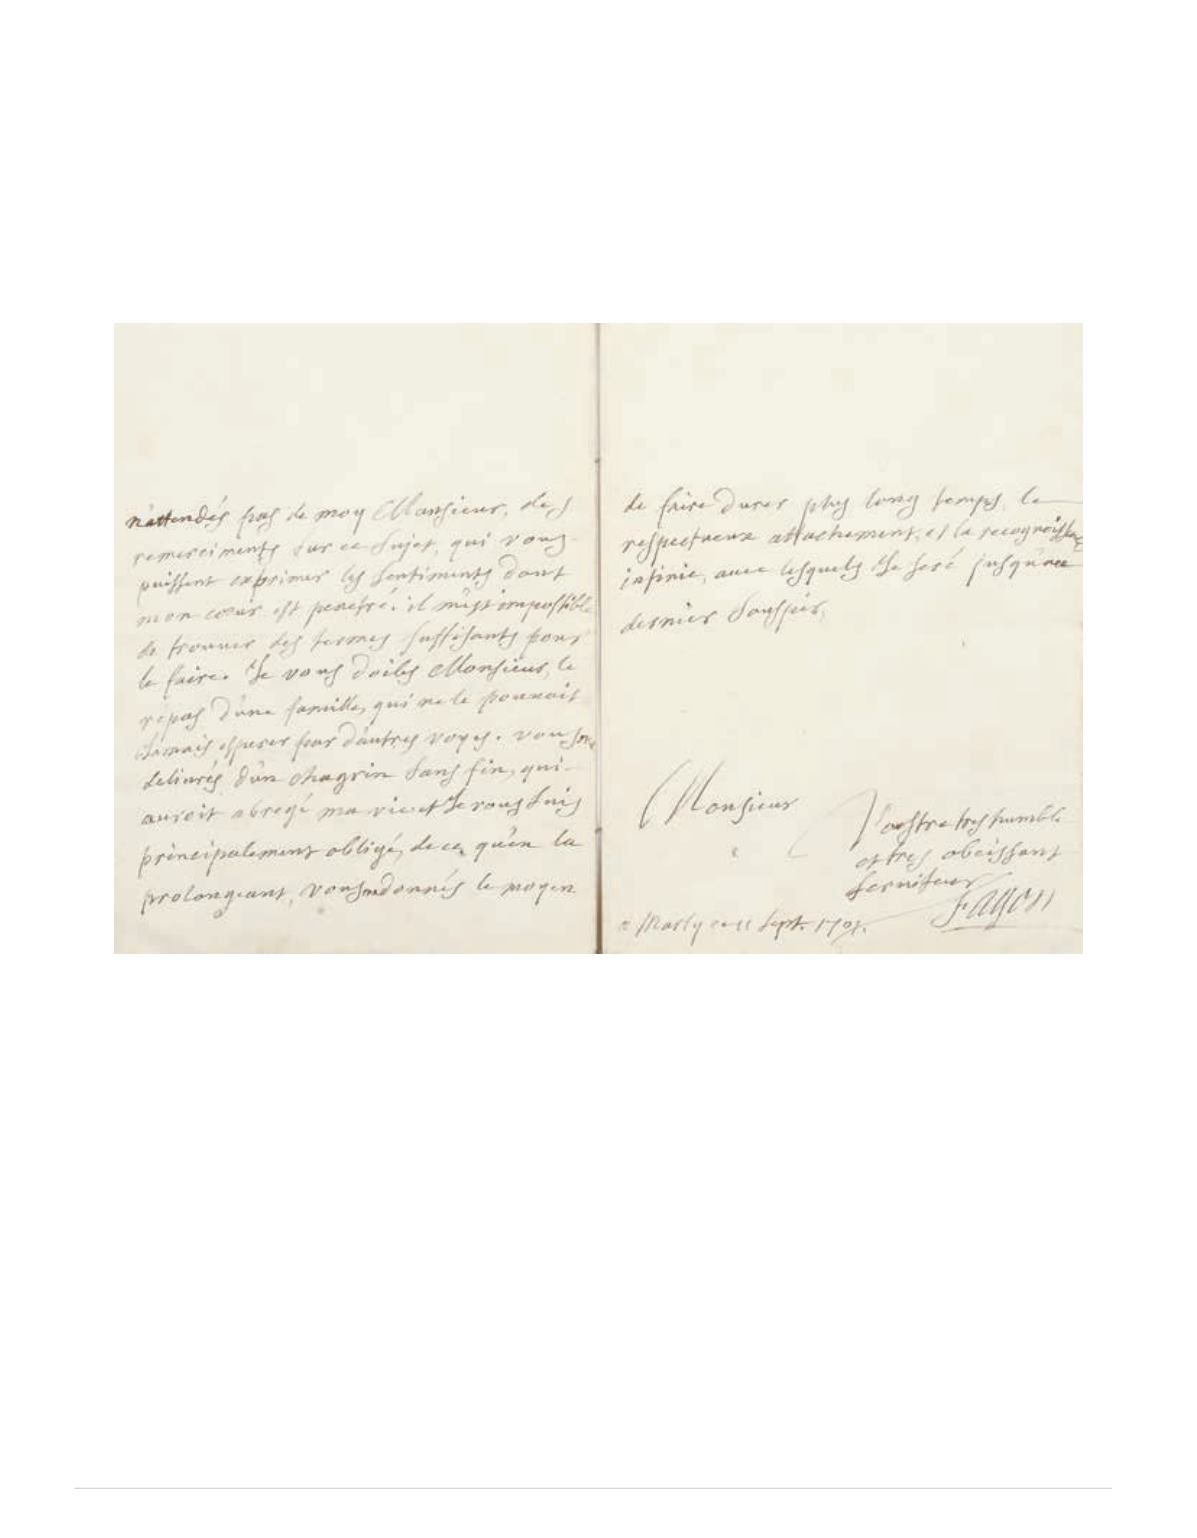 n'attendés pas de moy Monsieur, des
remerciments sur ce sujet, qui vous
puissent exprimer les sentiments dont
mon cœur est penetré. il m'est impossible
de trouuer des termes suffisants pour
le faire. Je vous doibs Monsieur, le
repos d'une famille, qui ne le pouuoit
Jamais esperer par d'autres voyes. vous me
deliurés d'un chagrin sans fin, qui
auroit abregé ma vie et Je vous suis
principalement obligé, de ce, qu'en la
prolongeant, vous me donnés le moyen
de faire durer plus long temps, le
respectueux attachement, et la recognoissance
infinie, auec lesquels Je seré jusqu'au
dernier soupir,
Monsieur
Vostre tres humble
et tres obeissant
seruiteur
Fagon
a Marly ce 11 sept. 1701.